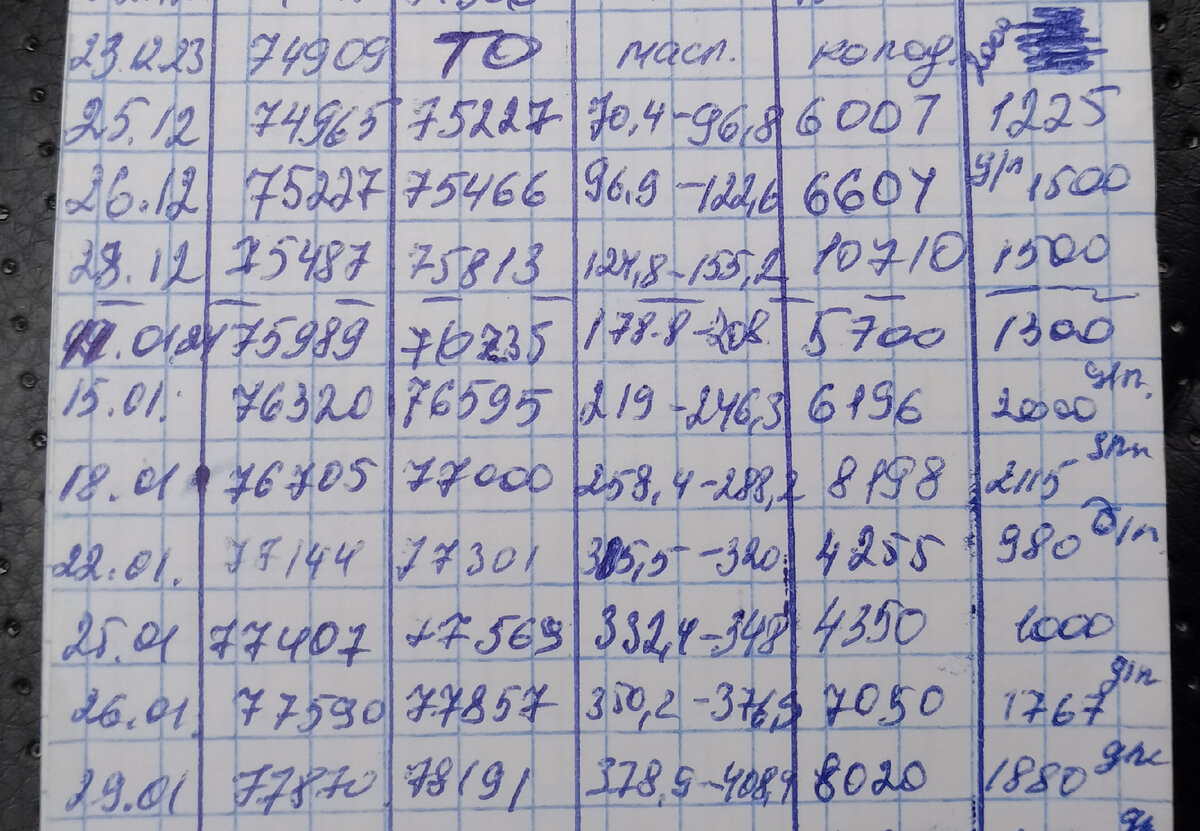 23.12.23 74909 ТО масл. колод.
25.12 74965 75227 70,4-96,8 6007 1225
26.12 75227 75466 96.9-122,6 6607 д/п 1500
28.12 75487 75813 124,8-155,2 10710 1500
11.01.24 75989 76235 178.8-208. 5700 1300
15.01. 76320 76595 219-246,3 6196 2000 д/п.
18.01 76705 77000 258,4-288,2 8198 2115
22.01. 77144 77301 305,5-320. 4255 980 д/п
25.01 77407 77569 332,4-348 4350 1000
26.01. 77590 77857 350,2-376,9 7050 1767 д/п
29.01 77870 78191 378,9-408,4 8020 1880